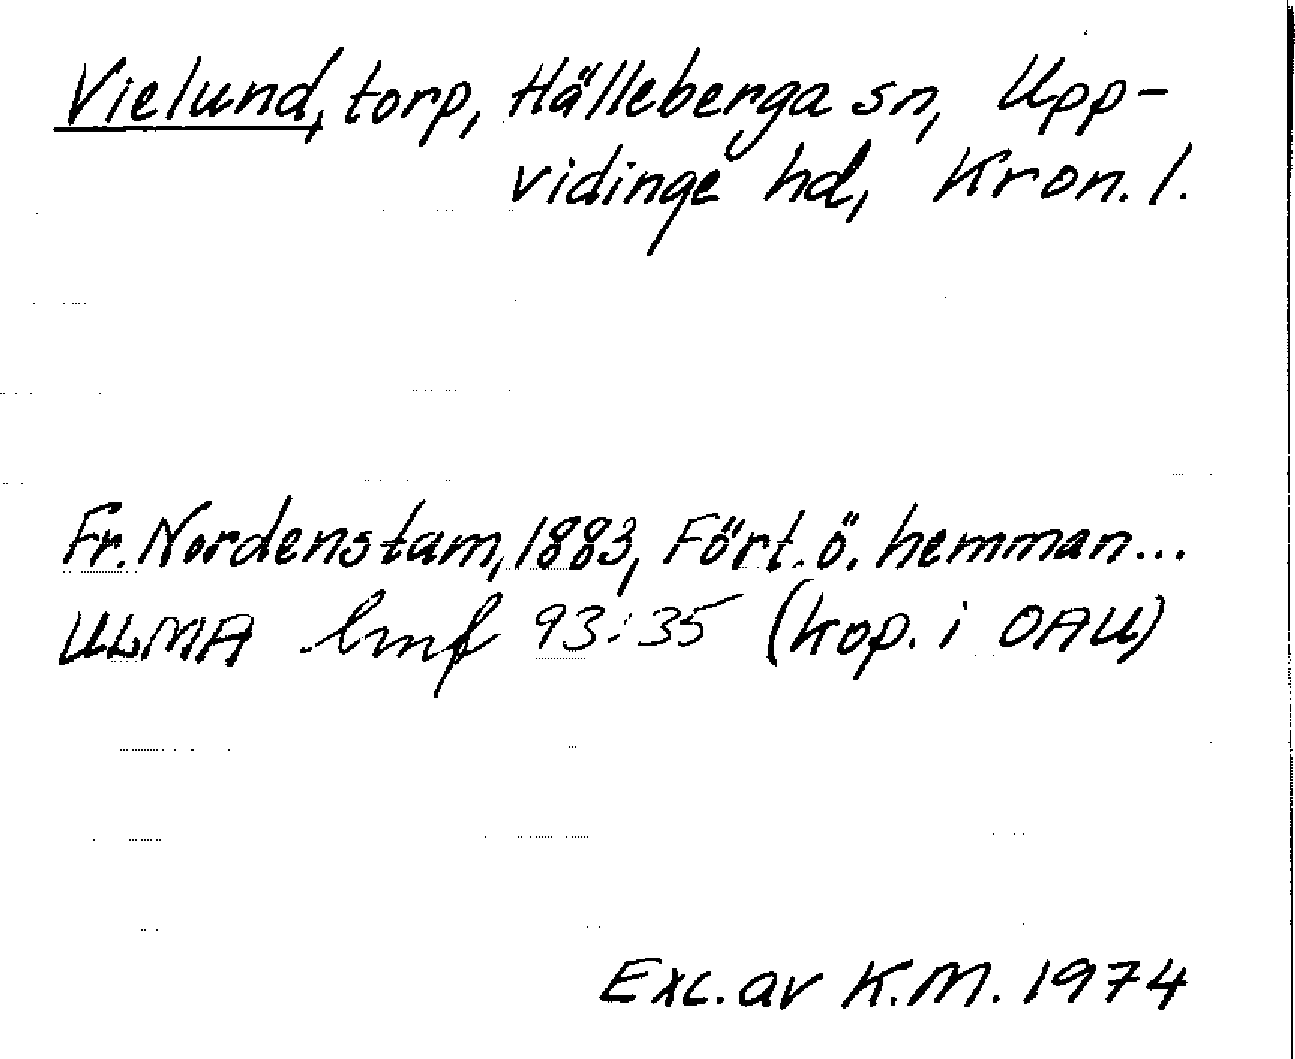 Vielund, torp, Hälleberga sn, Upp-
vidinge hd, Kron. l.
Fr. Nordenstam, 1883, Fört. ö. hemman...
ULMA hmf 93:35 (kop. i OAU)
Exc. av K.M. 1974